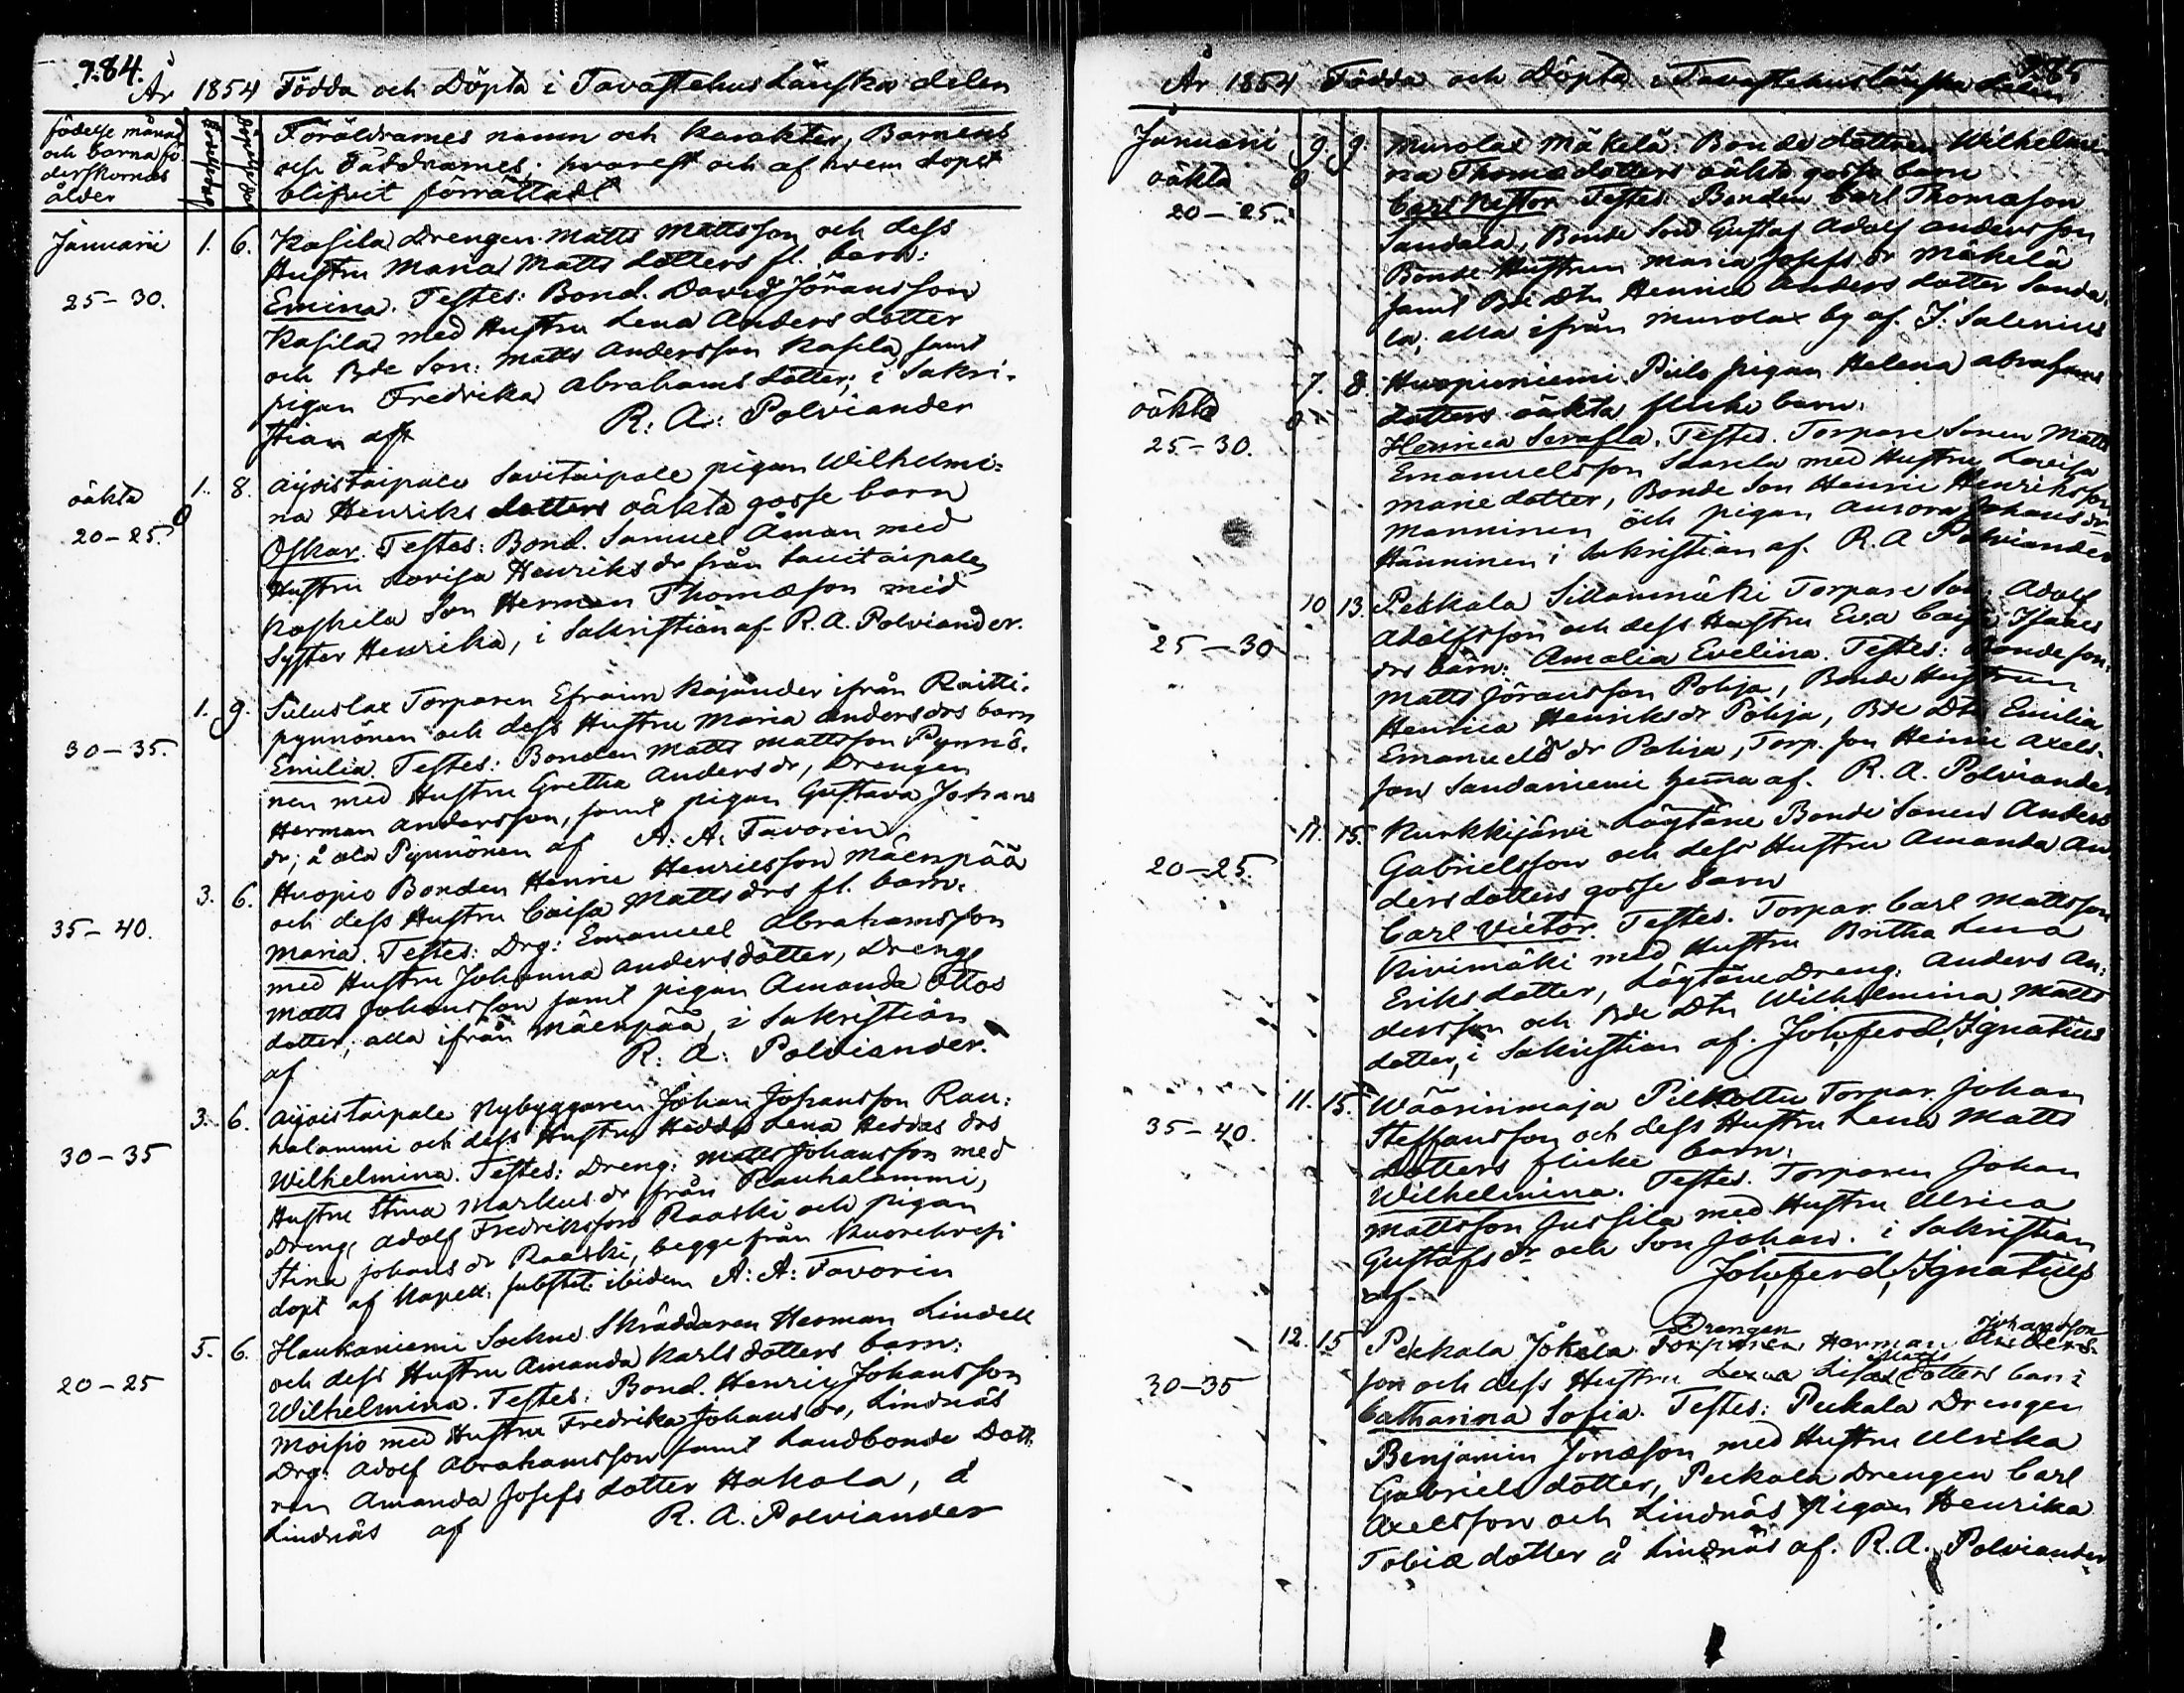 984.
År 1854 Födda och Döpta i Tavastehus Länska delen
födelse månad
och barnafö
derskornas
ålder
Föräldrarnes namn och karakter, Barnens
och Faddrarnes; hvarest och af hvem dopet
blifvit förrättadt
Januarii 1. 6. Kasila Drengen Matts Mattsson och dess
Hustru Maria Matts dotters fl. barn:
25-30. Emina. Testes: Bond. David Jöransson
Kasila med Hustru Lena Anders dotter
och Bde Son: Matts Andersson Kasila samt
pigan Fredrika Abrahams dotter; i Sakri-
stian af R: A: Polviander
oäkta 1. 8. Äijöistaipale Savitaipale pigan Wilhelmi-
na Henriks dotters oäkta gosse barn
20-25. Oskar. Testes: Bond. Samuel Åman med
Hustru Lovisa Henriks dr från Savitaipale
Koskela Son Herman Thomæson med
Syster Henrika, i Sakristian af R. A. Polviander.
1. 9. Siluslax Torparen Efraim Kajander ifrån Raitti-
pynnönen och dess Hustru Maria Anders drs barn
30-35. Emilia. Testes: Bonden Matts Mattsson Pynnö-
nen med Hustru Gretha Anders dr, Drengen
Herman Andersson, samt pigan Gustava Johans
dr; å ala Pynnönen af A: A: Favorin
3. 6. Huopio Bonden Henric Henricsson Mäenpää
och dess Hustru Caisa Matts drs fl. barn.
35-40. Maria. Testes: Drg: Emanuel Abrahamsson
med Hustru Johanna Anders dotter, Dreng
Matts Johansson samt pigan Amanda Ottos
dotter; alla ifrån Mäenpää, i Sakristian
af R: A: Polviander.
3. 6. Äijöistaipale Nybyggaren Johan Johansson Rau-
halammi och dess Hustru Hedda Lena Heddas drs
30-35 Wilhelmina. Testes: Dreng: Matts Johansson med
Hustru Stina Markus dr från Rauhalammi,
Dreng Adolf Fredriksson Raaski och pigan
Stina Johans dr Raaski, begge från Kuorehvesi
döpt af Kapell: substit: ibidem A: A: Favorin
5. 6. Haukaniemi Sockne Skräddaren Herman Lindell
och dess Hustru Amanda Karls dotters barn:
20-25 Wilhelmina. Testes: Bond. Henric Johansson
Moisio med Hustru Fredrika Johans dr, Lindnäs
Drg: Adolf Abrahamsson samt Landbonde Dott
ren Amanda Josefs dotter Hakala, å
Lindnäs af R. A. Polviander
985
År 1854 Födda och Döpta i Tavastehus länska delen
Januarii 9 9. Murolax Mäkelä: Bonde dottren Wilhelmi-
oäkta na Thomæ dotters oäkta gosse barn
20-25. Carl Nestor Testes: Bonden Carl Thomæson
Sandala, Bonde Son Gustaf Adolf Andersson
Bonde Hustrun Maria Josefs dr Mäkelä
samt Bde Dtr Henrica Anders dotter Sanda-
la; alla ifrån Murolax by af. J: Salenius
7. 8. Huopioniemi Piilo pigan Helena Abrahams
oäkta dotters oäkta flicke barn:
25-30. Henrica Serafia. Testes. Torpare Sonen Matts
Emanuelsson Saarela med Hustru Lovisa
Marie dotter, Bonde Son Henric Henriksson
Manninen och pigan Aurora Johans dr
Hänninen i Sakristian af. R. A Polviander
10 13. Pekkala Sillanmäki Torpare Son Adolf
Adolfsson och dess Hustru Eva Caisa Isaacs
25-30 drs barn: Amalia Evelina. Testes: Bonde son.
Matts Jöransson Pohja, Bonde Hustrun
Henrica Henriks dr Pohja, Bde Dtr Emilia
Emanuels dr Pohja, Torp. son Heinric Axels-
son Sandaniemi hema af. R. A. Polviander
11. 15. Kurkkijärvi Lögtäne Bonde Sonen Anders
20-25. Gabrielsson och dess Hustru Amanda An
ders dotters gosse barn
Carl Victor. Testes. Torpar. Carl Mattsson
Kivimäki med Hustru Britha Lena
Eriks dotter, Lögtäne Dreng: Anders An-
dersson och Bde Dtr Wilhelmina Matts
dotter, i Sakristian af. Joh. ferd. Ignatius
11. 15. Wäärinmaja Pilkottu Torpar. Johan
35-40. Steffansson och dess Hustru Lena Matts
dotters flicke barn:
Wilhelmina. Testes. Torparen Johan
Mattsson Jussila med Hustru Ulrica
Gustafs dr och Son Johan. i Sakristian
af. Joh. ferd. Ignatius
Drengen Johansson
12. 15 Pekkala Jokela Torparen Herman Anders-
Matts
30-35 son och dess Hustru Lena Lisa dotters barn:
Catharina Sofia. Testes: Pekkala Drengen
Benjamin Jonæson med Hustru Ulrika
Gabriels dotter, Pekkala Drengen Carl
Axelsson och Lindnäs Pigan Henrika
Tobiæ dotter å Lindnäs af. R. A. Polviander